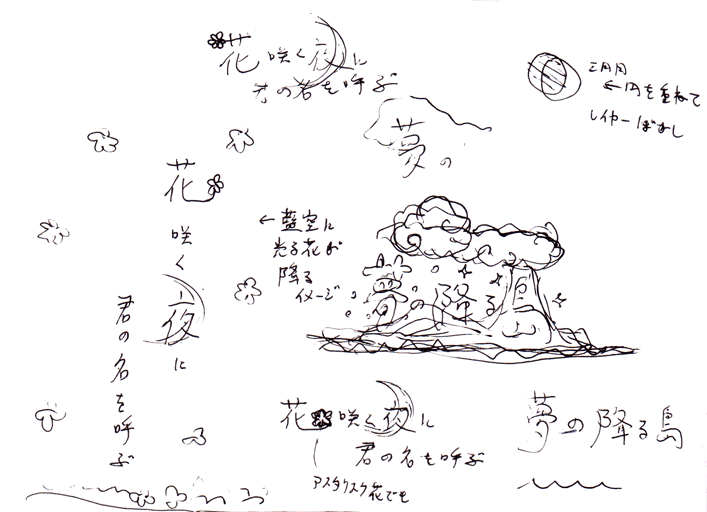 花咲く夜に
君の名を呼ぶ
三日月
←円を重ねて
レイヤーぼかし
夢の
花
咲く
夜に
君の名を呼ぶ
←藍空に
光る花が
降る
イメージ
夢の降る島
花咲く夜に
君の名を呼ぶ
アスタリスク花でも
夢の降る島